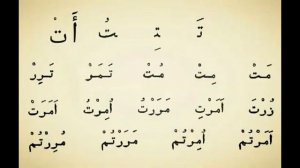 تَ تِ تُ أَتْ
مَتْ مِتْ مُتْ تَمَرْ تَرِزْ
زُرْتَ اَمَرْتِ مَرَرْتُ اُمِرْتُ اَمَرَتْ
اَمَرْتُمْ اُمِرْتُمْ مَرَرْتُمْ مُرِرْتُمْ